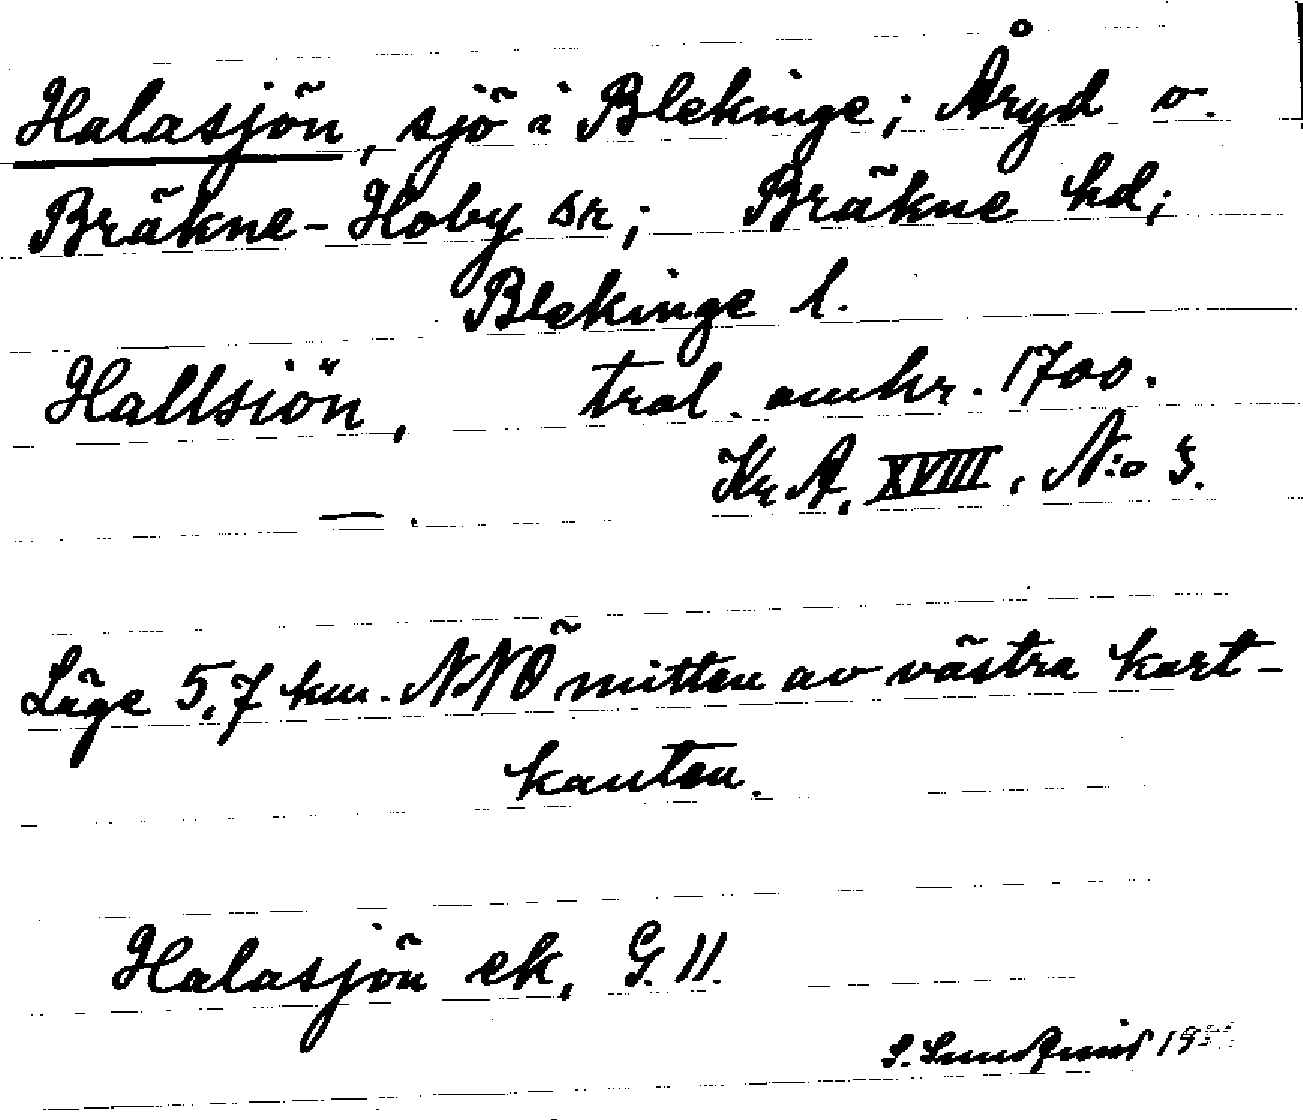 Halasjön, sjö i Blekinge; Åryd o.
Bräkne-Hoby sr; Bräkne hd;
Blekinge l.
Hallsiön, trol. omkr. 1700.
Kr A. XVIII, N:o 3.
— .
Läge 5,7 km. NNÖ mitten av västra kart-
kanten.
Halasjön ek. G. 11.
S. Lundquist